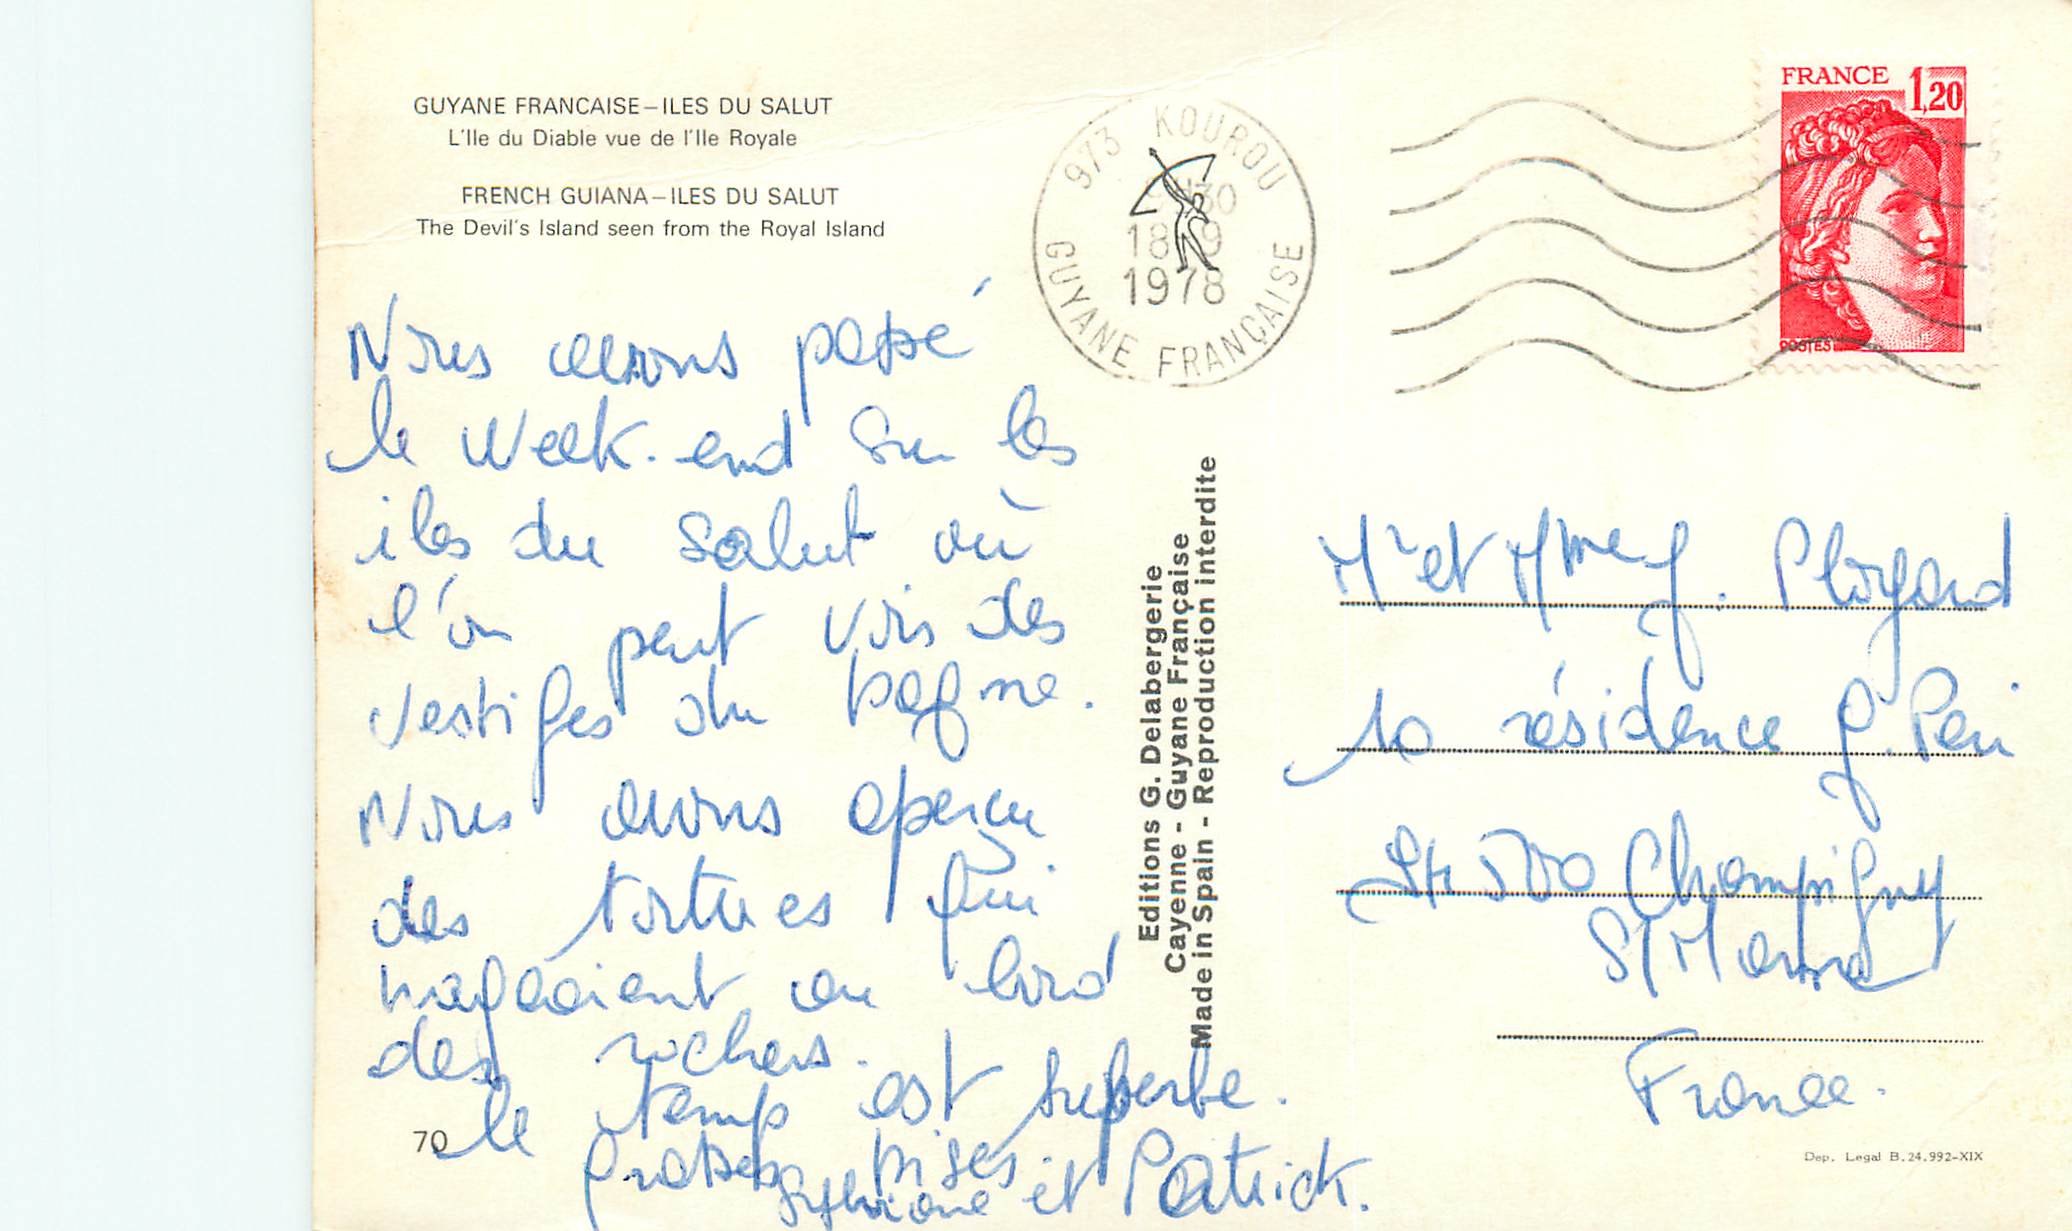 GUYANE FRANCAISE–ILES DU SALUT
L'Ile du Diable vue de l'Ile Royale
FRENCH GUIANA–ILES DU SALUT
The Devil's Island seen from the Royal Island
973 KOUROU
1978
GUYANE FRANÇAISE
FRANCE 1,20
POSTES
Nous avons passé
le week-end sur les
iles du Salut où
l'on peut voir des
vestiges du bagne.
Nous avons aperçu
des tortues qui
nageaient au bord
des rochers.
le temp est superbe.
Grosses bises
et Patrick.
70
Editions G. Delabergerie
Cayenne - Guyane Française
Made in Spain - Reproduction interdite
Mr et Mme J. Ployard
10 résidence G. Peri
94 500 Champigny
S/Marne
France.
Dep. Legal B. 24.992-XIX